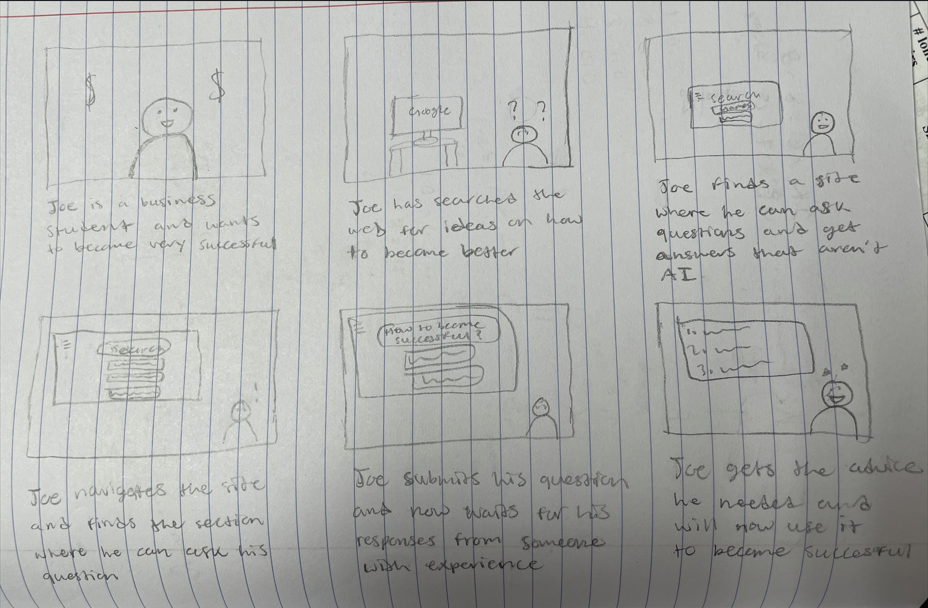 $ $
Joe is a business
student and wants
to become very successful
Google
? ?
Joe has searched the
web for ideas on how
to become better
search
Joe finds a site
where he can ask
questions and get
answers that aren't
AI
search
!
Joe navigates the site
and finds the section
where he can ask his
question
How to become
successful?
Joe submits his question
and now waits for his
responses from someone
with experience
1.
2.
3.
Joe gets the advice
he needed and
will now use it
to become succesful